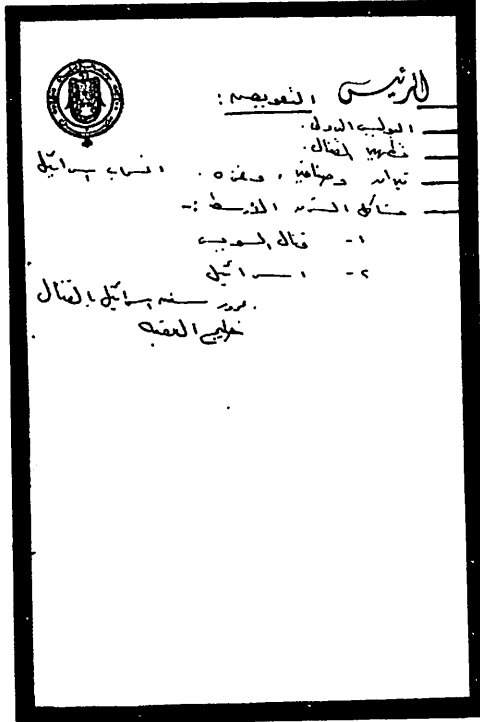 الرئيس
التعويضات :
البوليس الدولى .
تطهير القنال .
تيران وصنافير ، وغزة . انسحاب اسرائيل
مشاكل الشرق الأوسط :-
١ - قنال السويس
٢ - اسرائيل
مرور سفن اسرائيل بالقنال
خليج العقبه